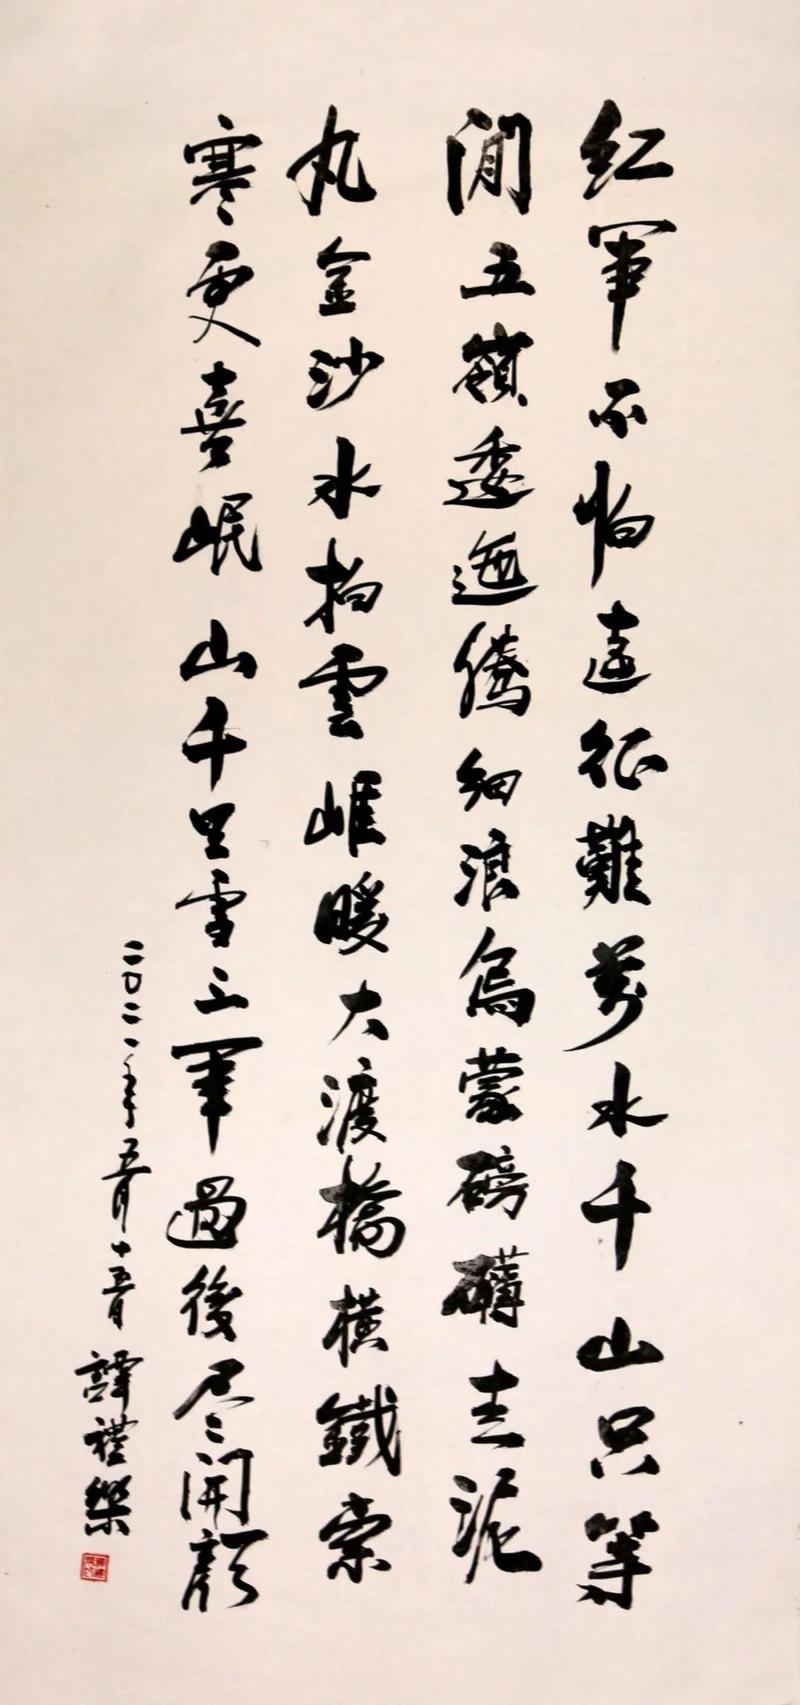 紅軍不怕遠征難萬水千山只等
閒五嶺逶迤騰細浪烏蒙磅礴走泥
丸金沙水拍雲崖暖大渡橋橫鐵索
寒更喜岷山千里雪三軍過後尽開顏
二〇二一年五月十五日譚禮樂